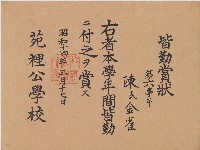 皆勤賞狀
陳氏金雀
右者本學年間皆勤
ニ付之ヲ賞ス
昭和十四年三月廿七日
苑裡公學校